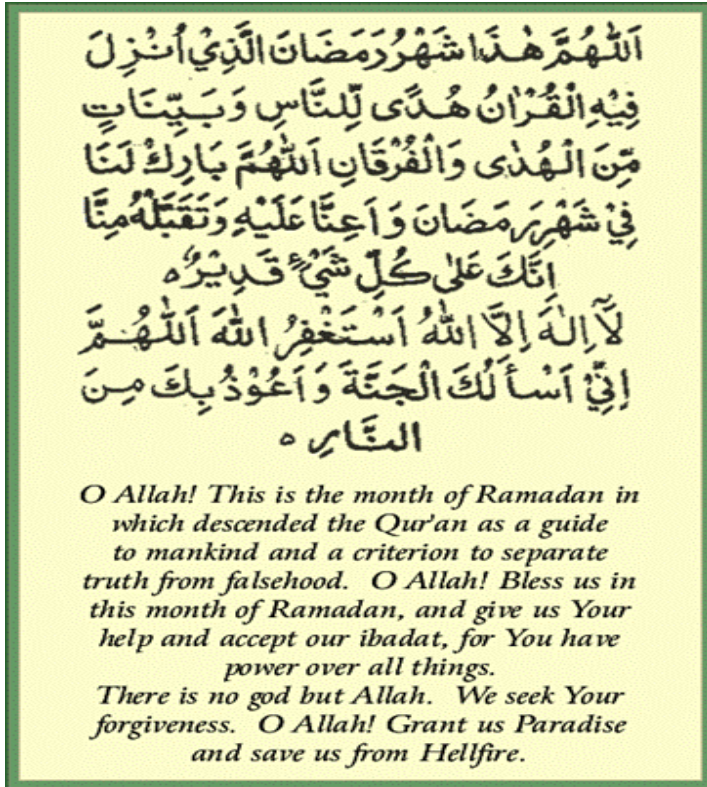 اَللّٰهُمَّ هٰذَا شَهْرُ رَمَضَانَ الَّذِيْ اُنْزِلَ
فِيْهِ الْقُرْاٰنُ هُدًى لِّلنَّاسِ وَبَيِّنَاتٍ
مِّنَ الْهُدٰى وَالْفُرْقَانِ اَللّٰهُمَّ بَارِكْ لَنَا
فِيْ شَهْرِ رَمَضَانَ وَاَعِنَّا عَلَيْهِ وَتَقَبَّلْهُ مِنَّا
اِنَّكَ عَلٰى كُلِّ شَيْءٍ قَدِيْرٌ ه
لَآ اِلٰهَ اِلَّا اللّٰهُ اَسْتَغْفِرُ اللّٰهَ اَللّٰهُمَّ
اِنِّيْ اَسْأَلُكَ الْجَنَّةَ وَاَعُوْذُ بِكَ مِنَ
النَّارِ ه
O Allah! This is the month of Ramadan in
which descended the Qur'an as a guide
to mankind and a criterion to separate
truth from falsehood. O Allah! Bless us in
this month of Ramadan, and give us Your
help and accept our ibadat, for You have
power over all things.
There is no god but Allah. We seek Your
forgiveness. O Allah! Grant us Paradise
and save us from Hellfire.